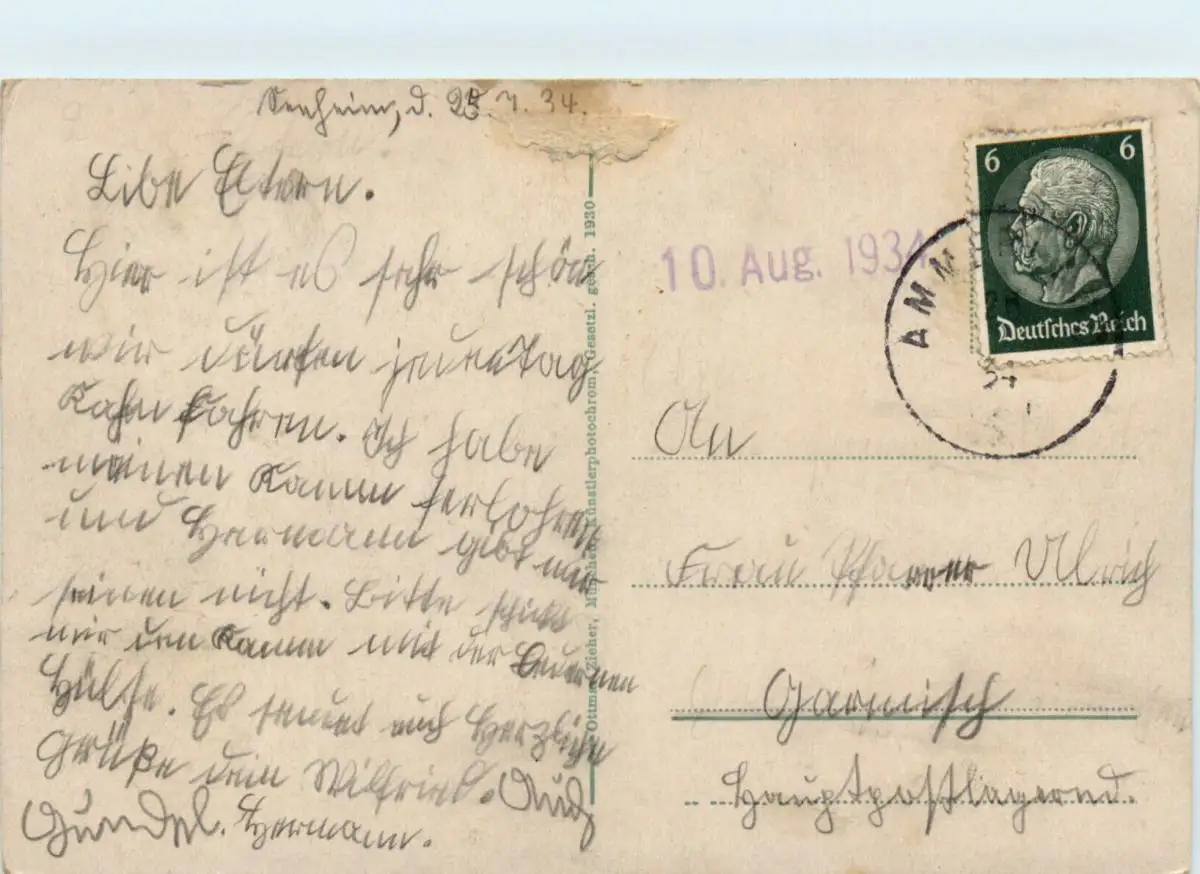 Seeheim, d. 25.7.34.
Libe Eltern.
Hier ist es sehr schön
wir dürfen jeden Tag
Kahn fahren. Ich habe
meinen Kamm ferlohren
und Hermann gibt mir
seinen nicht. Bitte schikt
mir den Kamm mit der Ledernen
Hülse. Es sendet euch Herzliche
Grüße dein Wilfried. Auch
Gundel. Hermann.
Ottmar Zieher, München. Künstlerphotochrom. Gesetzl. gesch. 1930
6 6
Deutsches Reich
AMM
10. Aug. 1934
An
Frau Pfarrer Ulrich
Garmisch
Hauptpostlagernd.